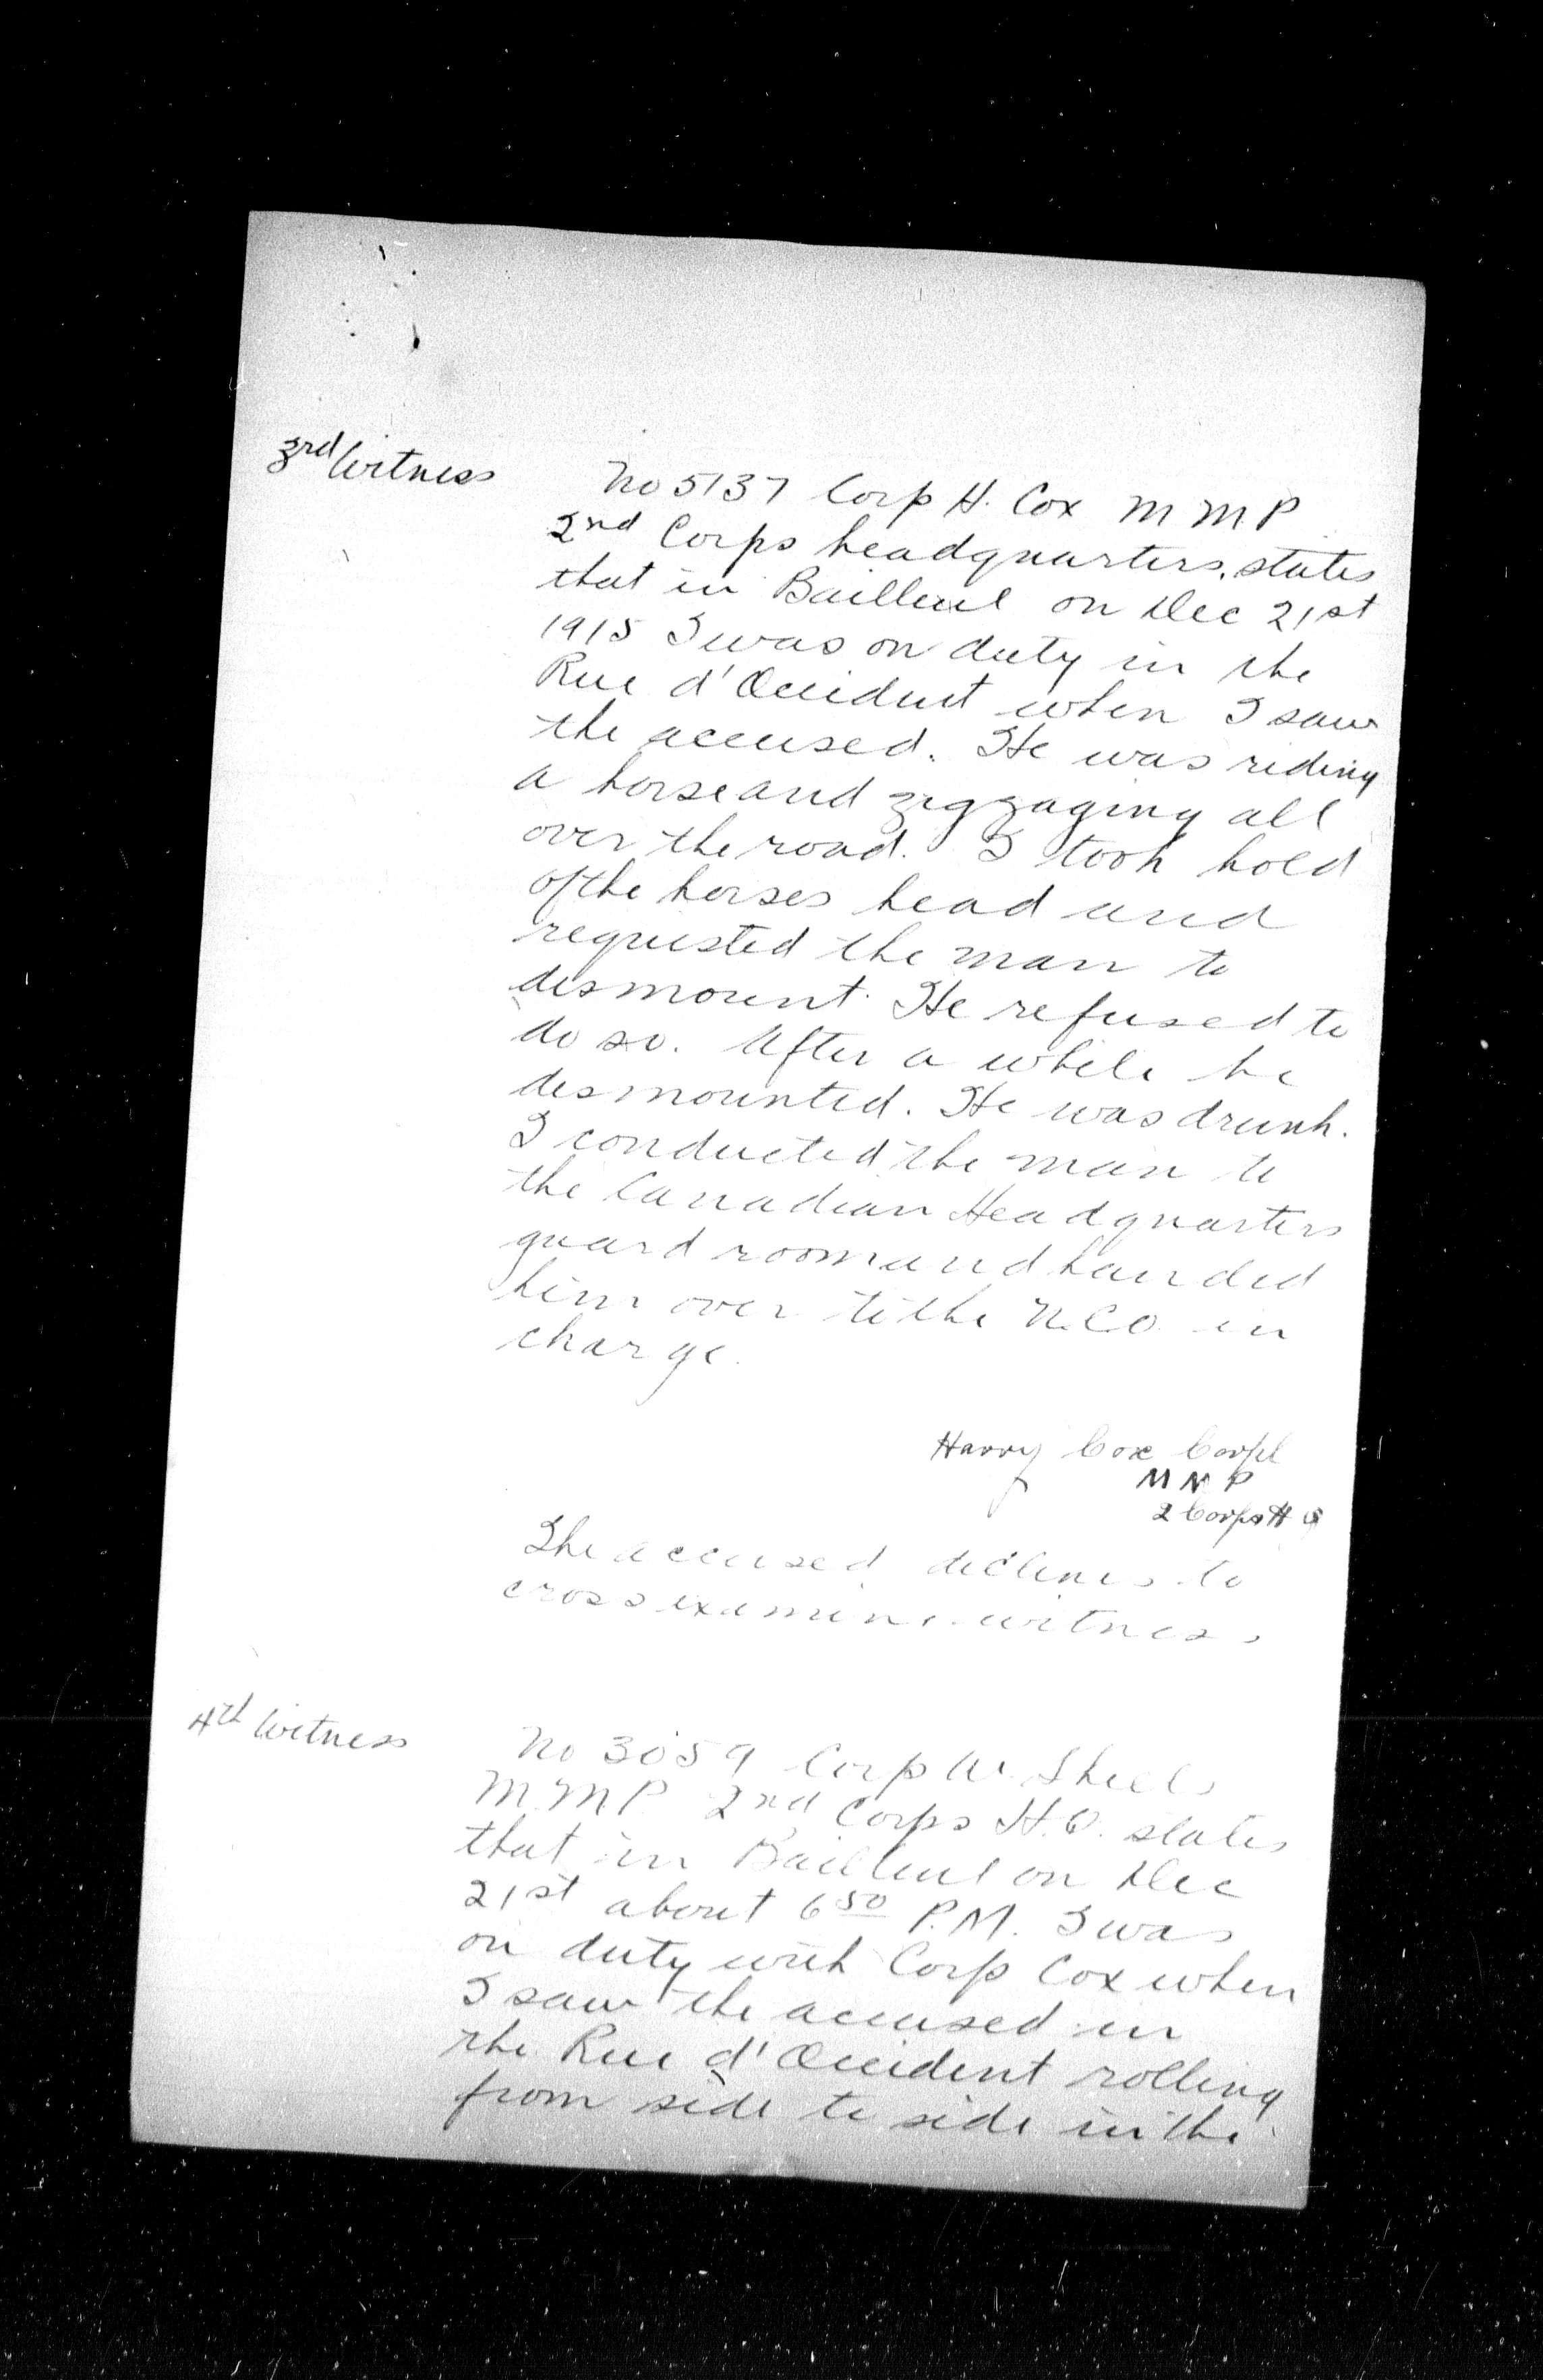 3rd Witness
No 5137 Corp H. Cox M M P
2nd Corps headquarters, states
that in Bailleul on Dec 21st
1915 I was on duty in the
Rue d'Occident when I saw
the accused. He was riding
a horse and zigzaging all
over the road. I took hold
of the horses head and
requested the man to
dismount. He refused to
do so. After a while he
dismounted. He was drunk.
I conducted the man to
the Canadian Headquarters
guard room and handed
him over to the N.C.O. in
charge.
Harry Cox Corpl
M M P
2 Corps H Q
The accused declines to
cross examine witness
4th Witness
No 3059 Corp W. Shiels
M.M.P. 2nd Corps H.Q. states
that in Bailleul on Dec
21st about 6 50 P.M. I was
on duty with Corp Cox when
I saw the accused in
the Rue d'Occident rolling
from side to side in the